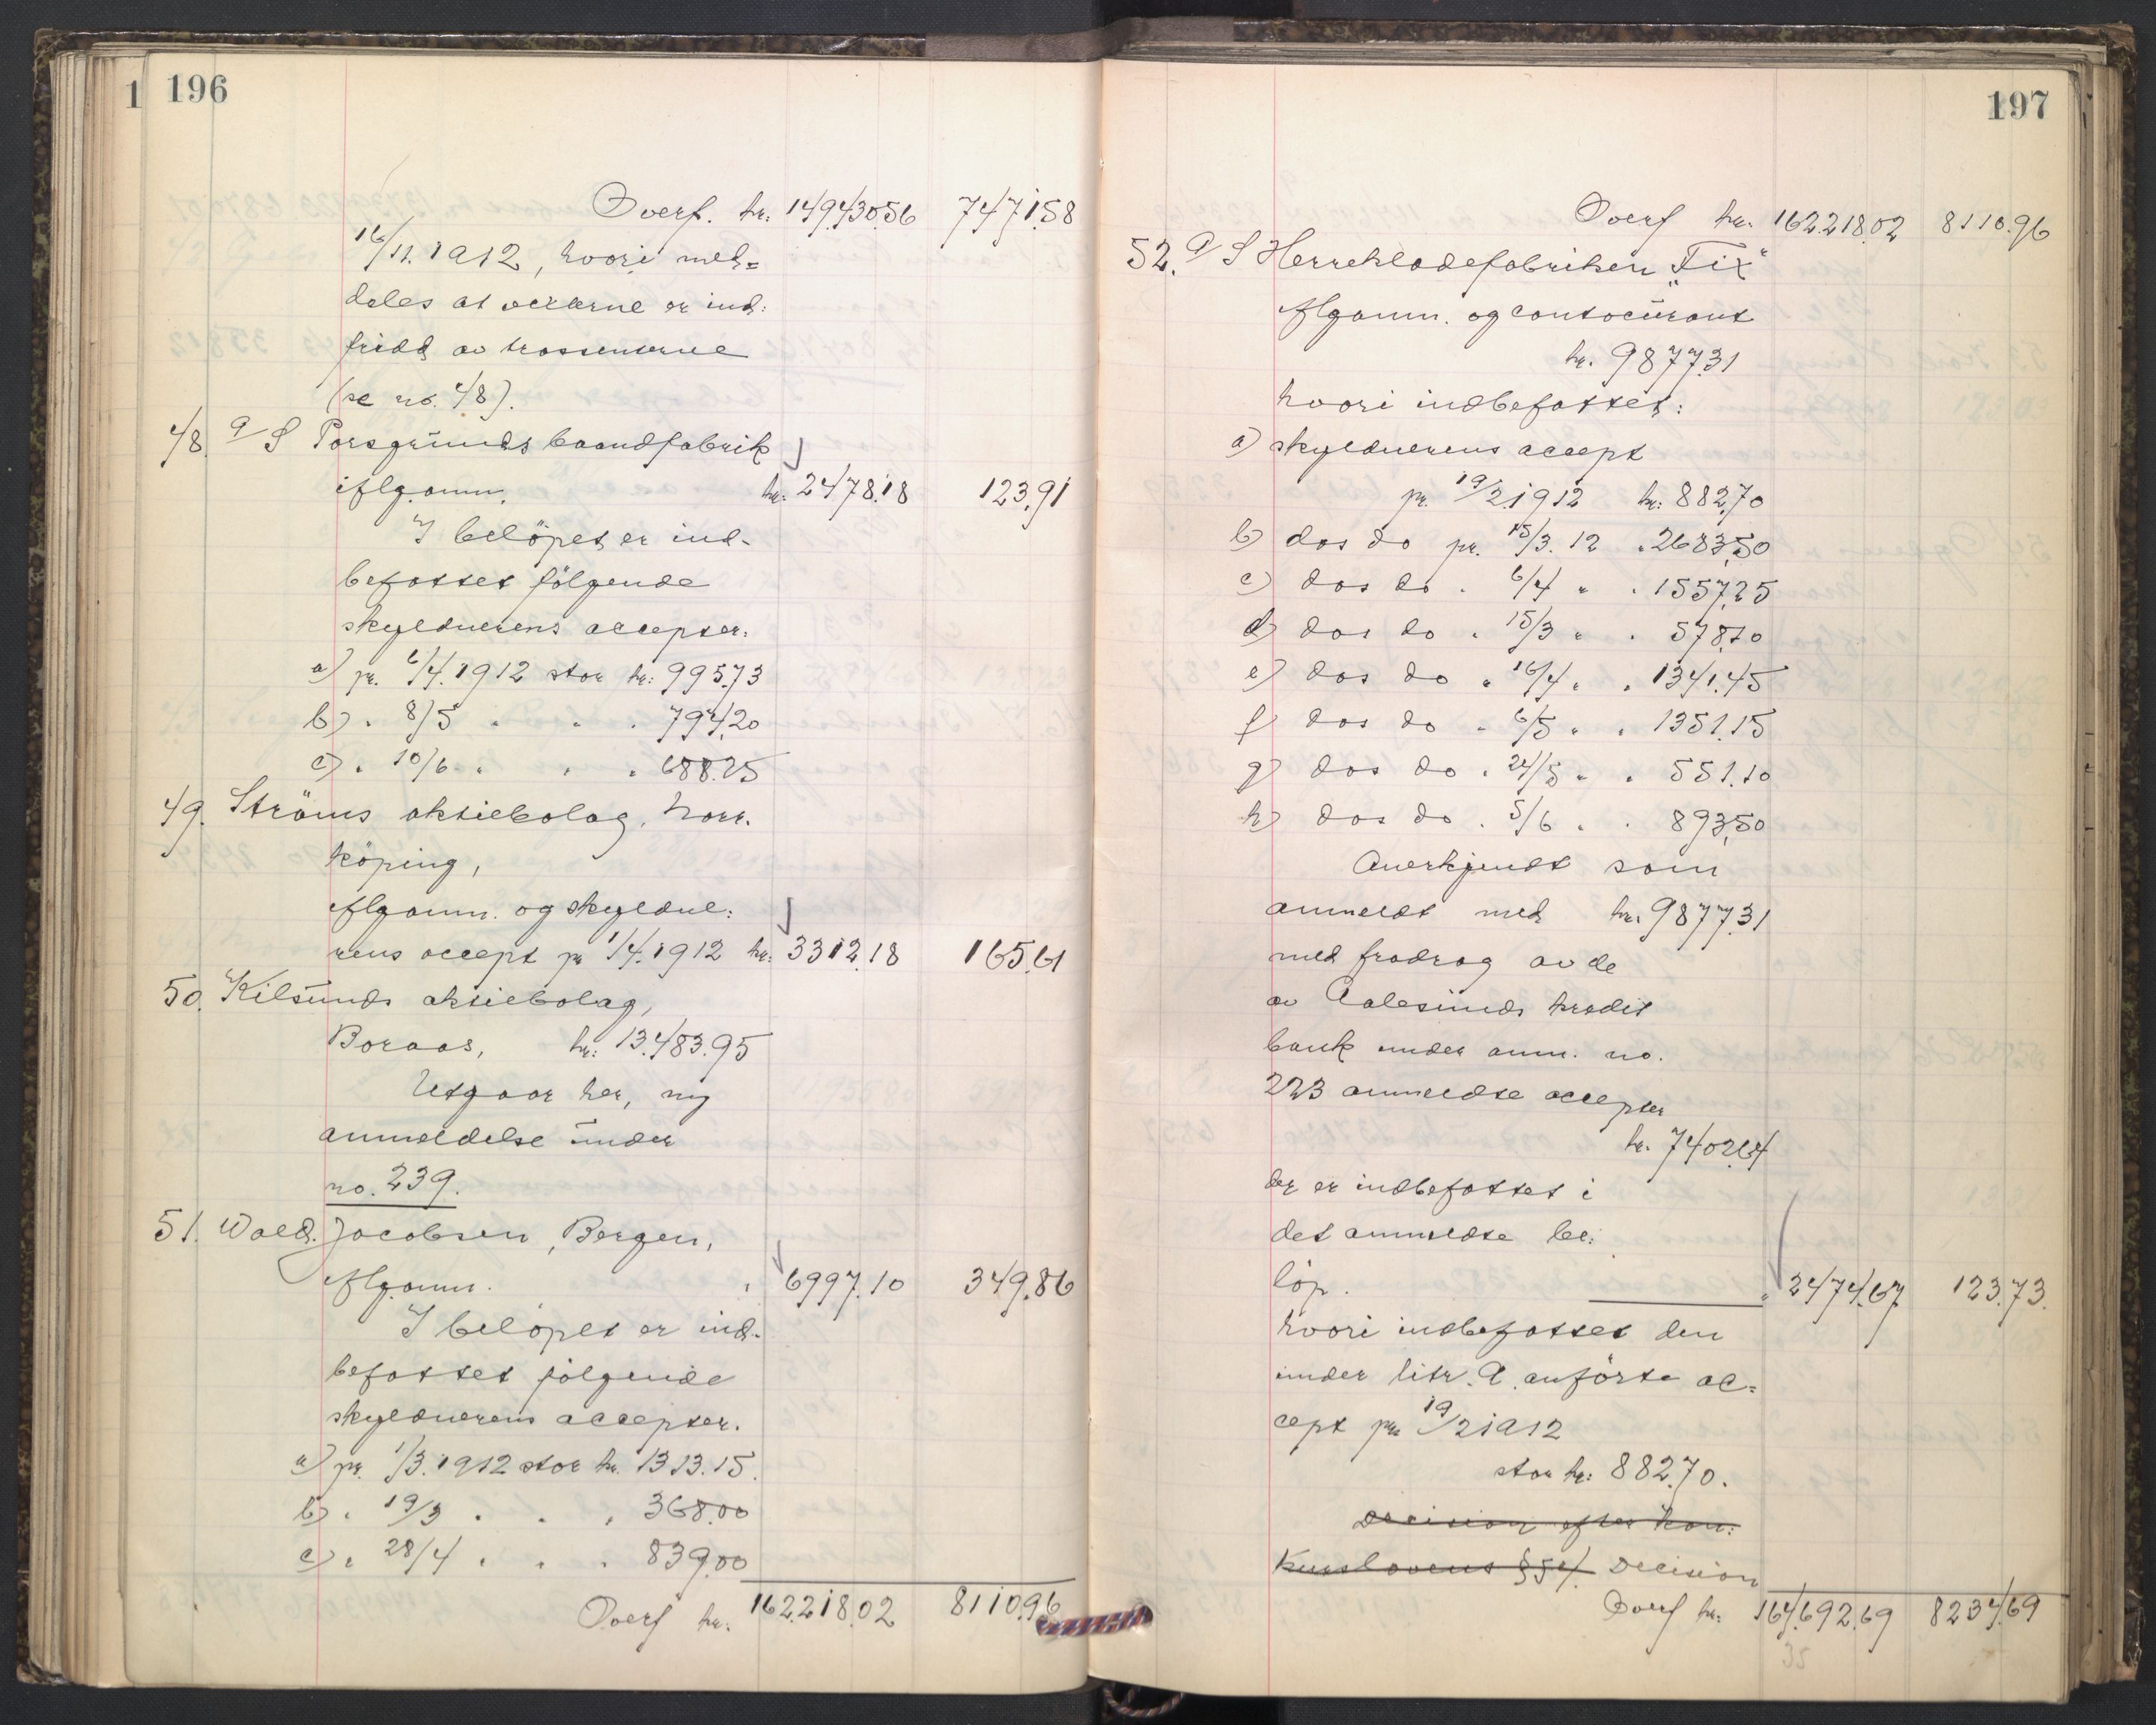 1 196
Overf. kr. 149430.56 7471.58
16/11.1912, hvori med=
deles at vexlerne er ind:
fridd av trassenterne
(se no. 48).
48. A/S Porsgrunds baandfabrik
iflg. anm. kr. 2478.18 123.91
I belöpet er ind-
befattet följende
skyldnerens accepter:
a) pr. 6/4.1912 stor kr: 995.73
b) " 8/5 " " " 794,20
c) " 10/6 " " " 688.25
49. Ströms aktiebolag, Norr-
köping,
iflg. anm. og skyldne:
rens accept pr 1/4.1912 kr. 3312.18 165.61
50. Kilsunds aktiebolag,
Boraas, kr: 13.483.95
Utgaar her, ny
anmeldelse under
no. 239.
51. Wald. Jacobsen, Bergen,
iflg. anm. " 6997.10 349.86
I belöpet er ind-
befattet fölgende
skyldnerens accepter.
a) pr. 1/3.1912 stor kr. 1313.15.
b) " 19/3 " " " 368.00
c) " 28/4 " " " 839.00
Overf kr. 162.218.02 8110.96
197
Overf kr. 162.218.02 8110.96
52. A/S Herreklædefabriken "Fix"
iflg. anm. og contocurant
kr. 9877.31
hvori indbefattet:
a) skyldnerens accept
pr. 19/2.1912 kr: 882,70
b) dos do pr. 15/3. 12 " 2683,50
c) dos do " 6/4 " " 1557,25
d) dos do " 15/3 " " 578,10
e) dos do " 16/4 " " 1341.45
f) dos do " 6/5 " " 1351.15
g) dos do " 24/5 " " 551.10
h) dos do " 5/6 " " 893,50
Anerkjendt som
anmeldt med kr. 9877.31
med fradrag av de
av Aalesunds kredit
bank under anm. no.
223 anmeldte accepter
kr. 7402.64
der er indbefattet i
det anmeldte be:
löp. " 2474.67 123.73.
hvori indbefattet den
under litr. A. anförte ac=
cept pr. 19/2 1912
stor kr: 882.70.
Decision efter kon:
kurslovens § 54. Decision
Overf kr: 164.692.69 8234.69
35